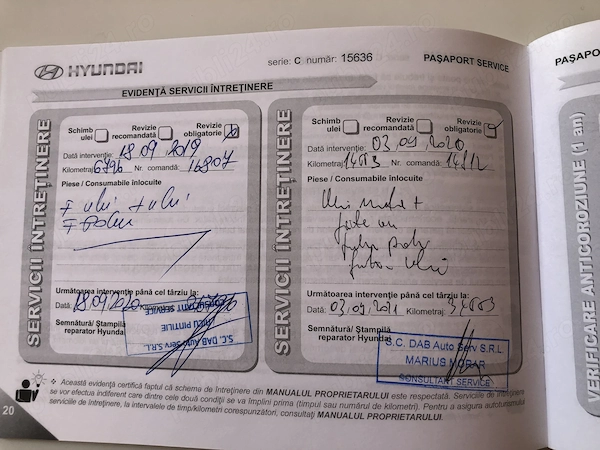 HYUNDAI
serie: C număr: 15636
PAȘAPORT SERVICE
PAȘAPO
EVIDENȚĂ SERVICII ÎNTREȚINERE
SERVICII ÎNTREȚINERE
Schimb ulei
Revizie recomandată
Revizie obligatorie
Data intervenție: 18 09 2019
Kilometraj: Nr. comandă: 16807
Piese / Consumabile înlocuite
Următoarea intervenție până cel târziu la:
Dată: 18.09.2020
Semnătură/ Ștampilă
reparator Hyundai
S.C. DAB Auto Serv S.R.L.
CONSULTANT SERVICE
SERVICII ÎNTREȚINERE
Schimb ulei
Revizie recomandată
Revizie obligatorie
Data intervenție: 03 09 2020
Kilometraj: Nr. comandă:
Piese / Consumabile înlocuite
Următoarea intervenție până cel târziu la:
Dată: 03.09.2021 Kilometraj:
Semnătură/ Ștampilă
reparator Hyundai
S.C. DAB Auto Serv S.R.L.
MARIUS
CONSULTANT SERVICE
VERIFICARE ANTICOROZIUNE (1 an)
Această evidență certifică faptul că schema de întreținere din MANUALUL PROPRIETARULUI este respectată. Serviciile de întreținere
se vor efectua indiferent care dintre cele două condiții se va împlini prima (timpul sau numărul de kilometri). Pentru a asigura autoturismului
serviciile de întreținere, la intervalele de timp/kilometri corespunzători, consultați MANUALUL PROPRIETARULUI.
20